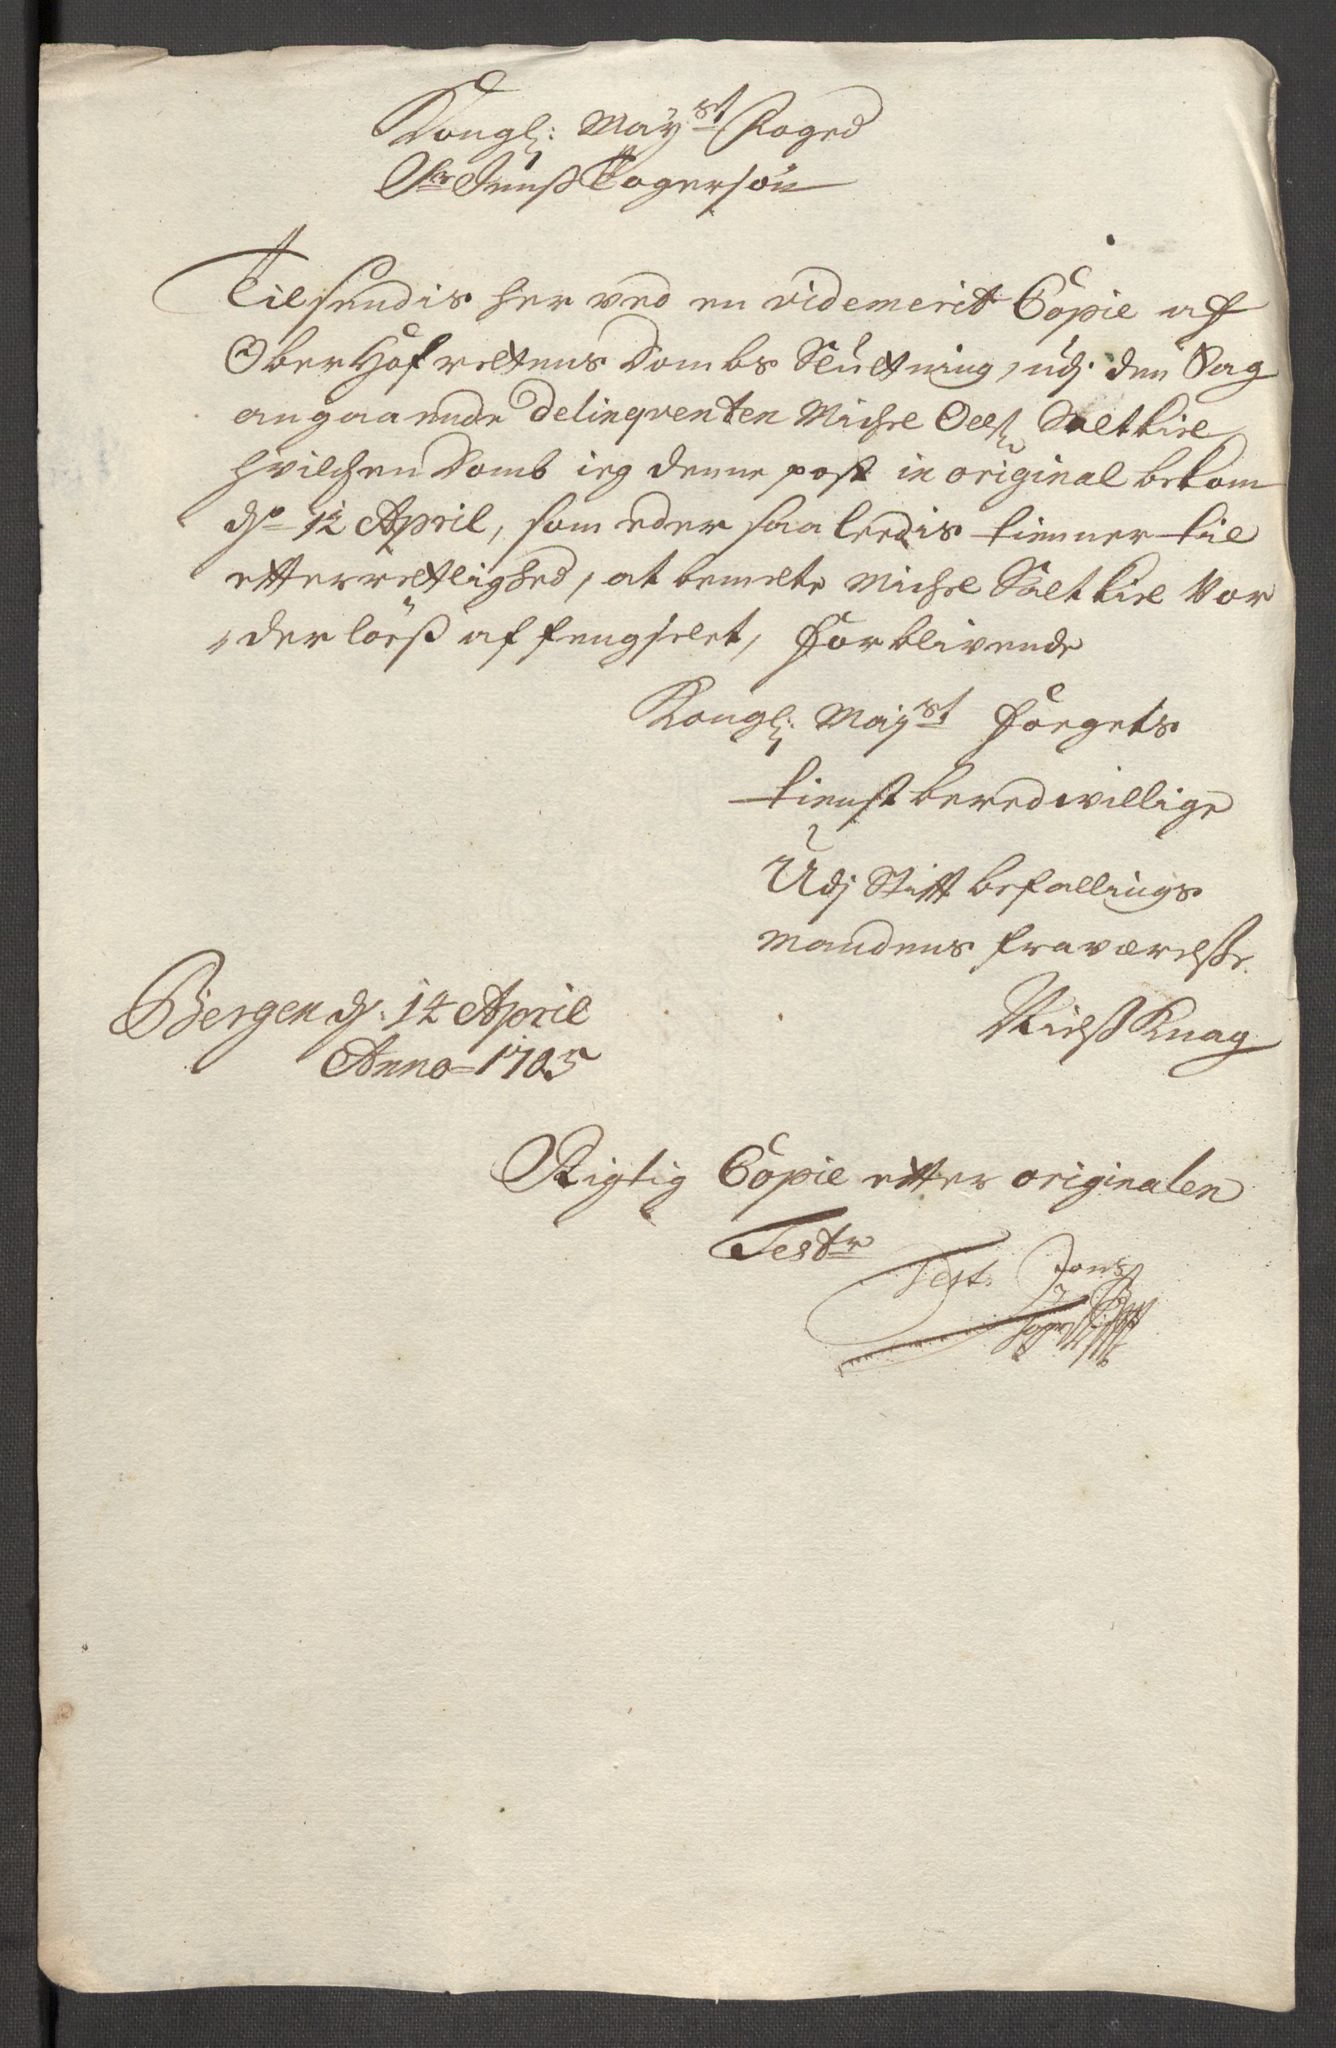 Kongl: May.st Foged
Sr Jenß Togersøn
Tilsendis her ved en videmerit Copie af
Ober Hof rettens Dombs Slutning, udj den Sag
angaaende Delinqventen Michel Oelß: Saltkiel
hvilchen Domb ieg denne post in original bekom
dn 12 April, som eder saaledis tienner til
etterretlighed, at bemelte Michel Saltkiel Vor
der löeß af fengselet, forblivende
Kongl: May.st Foegets
tienstberedwillige
Udj Stift befallings
mandens fraværelße.
Nielß Knag
Bergen d: 14 April
Anno 1705
Rigtig Copie etter originalen
Teste
Test. Jens